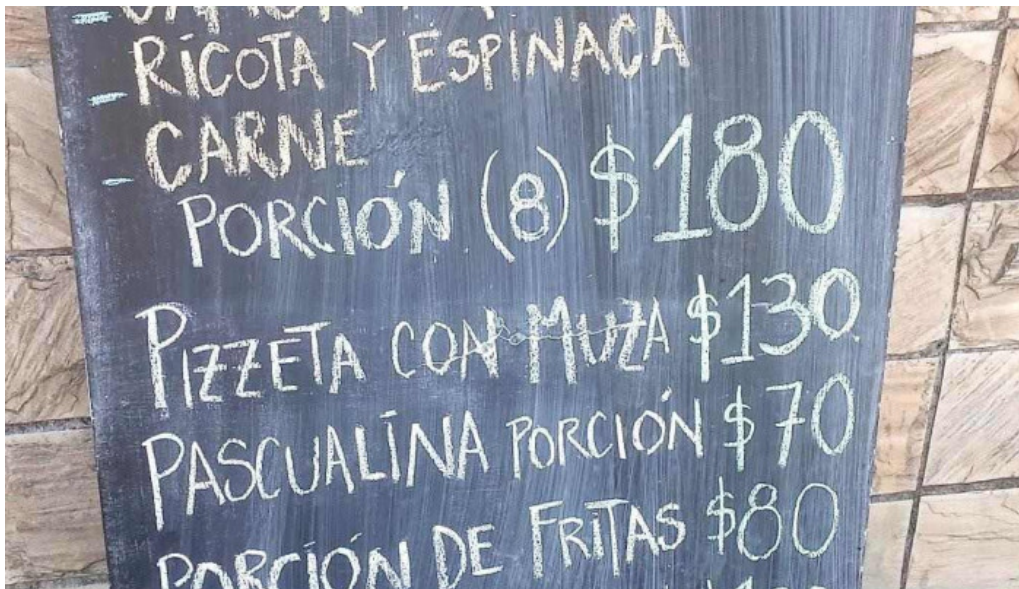 - RICOTA Y ESPINACA
- CARNE
PORCIÓN (8) $180
PIZZETA CON MUZA $130
PASCUALINA PORCIÓN $70
PORCIÓN DE FRITAS $80